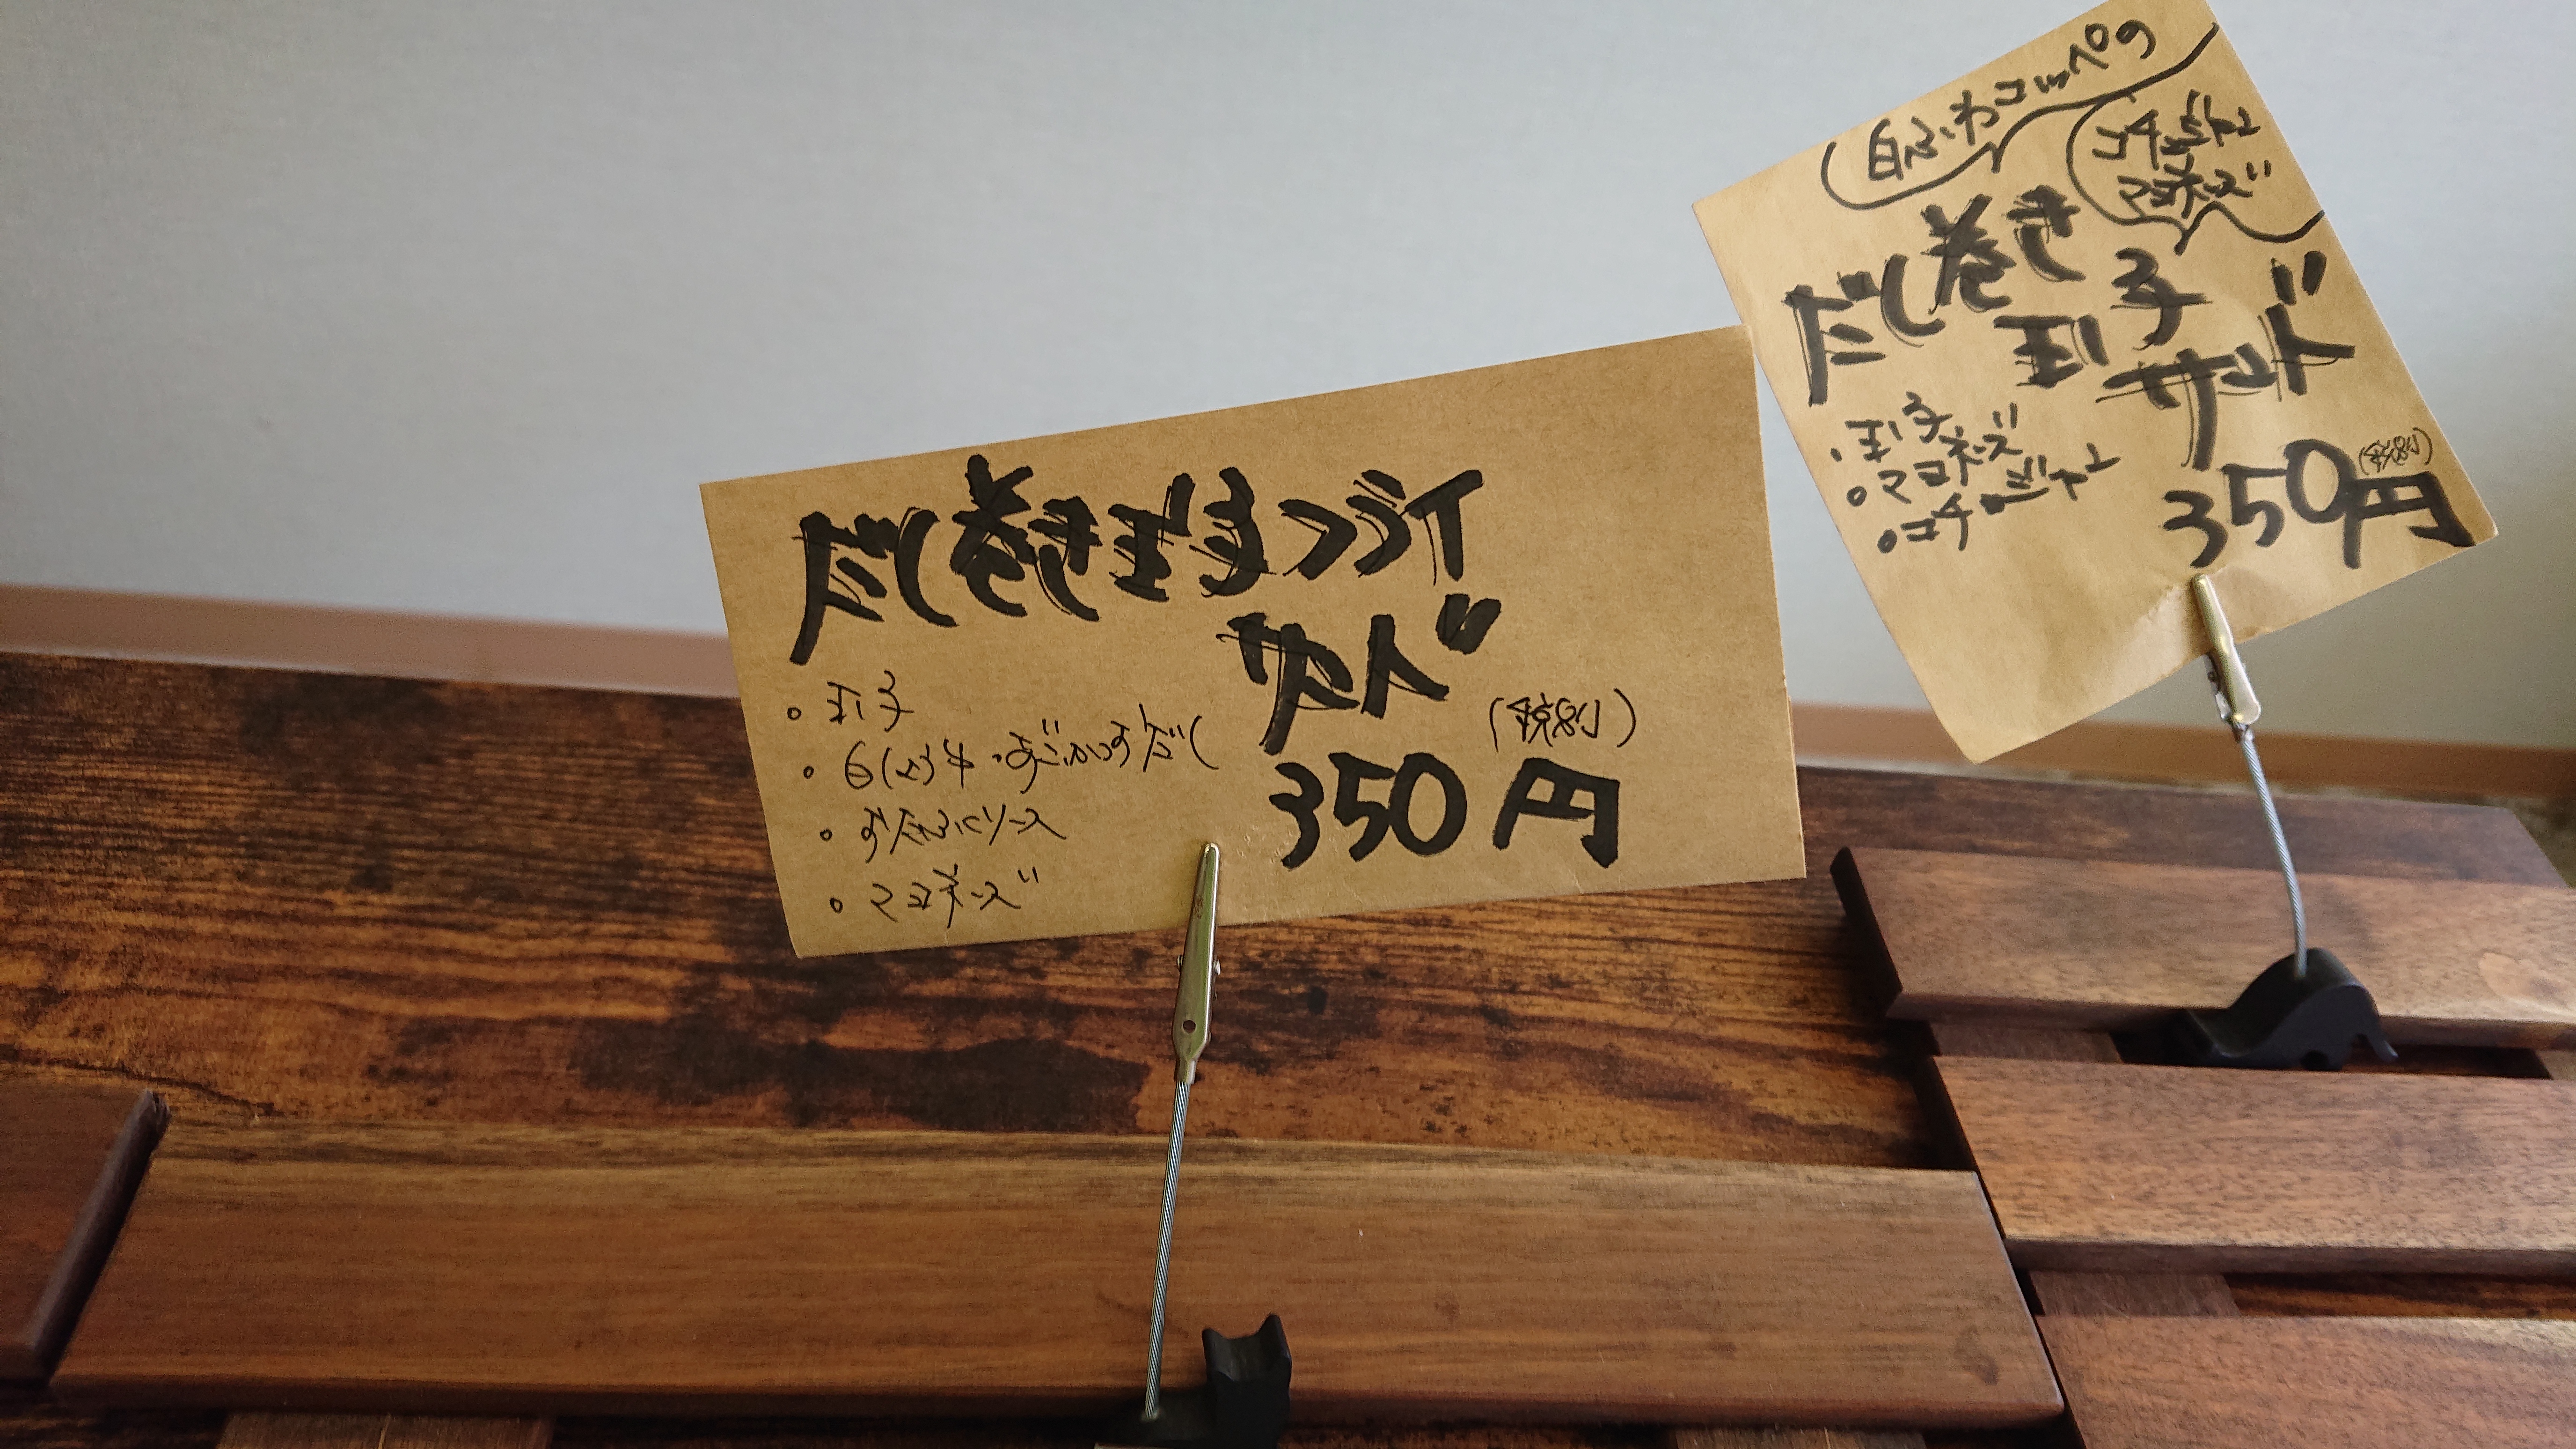 だし巻き玉子フライ
サンド
(税別)
350円
・玉子
・マヨネーズ
白ふわコッペの
コチュジャン
マヨネーズ
だし巻き
玉子
サンド
・玉子
・マヨネーズ
・コチュジャン
(税別)
350円